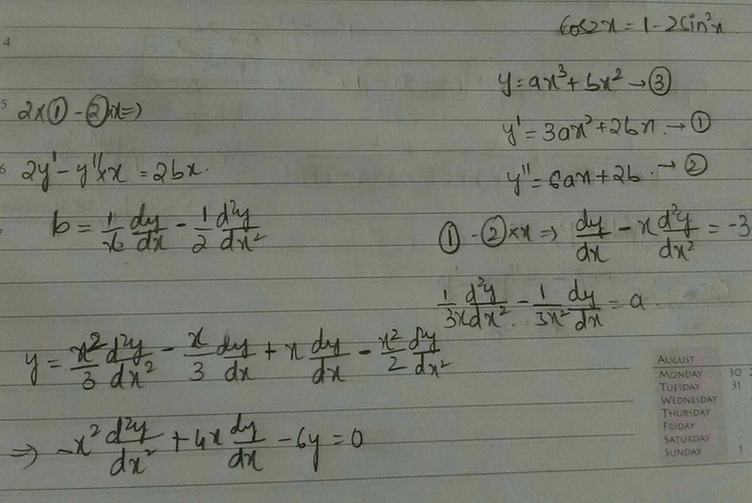 cos2x = 1 - 2sin²x
4
y = ax³ + bx² → ③
5
2×① - ②×x ⇒)
y' = 3ax² + 2bx. → ①
6
2y' - y''×x = 2bx.
y'' = 6ax + 2b. → ②
b = 1/x dy/dx - 1/2 d²y/dx²
① - ②×x ⇒ dy/dx - x d²y/dx² = -3
1/3x d²y/dx² - 1/3x² dy/dx = a.
y = x²/3 d²y/dx² - x/3 dy/dx + x dy/dx - x²/2 d²y/dx²
⇒ -x² d²y/dx² + 4x dy/dx - 6y = 0
AUGUST
MONDAY 30
TUESDAY 31
WEDNESDAY
THURSDAY
FRIDAY
SATURDAY
SUNDAY 1